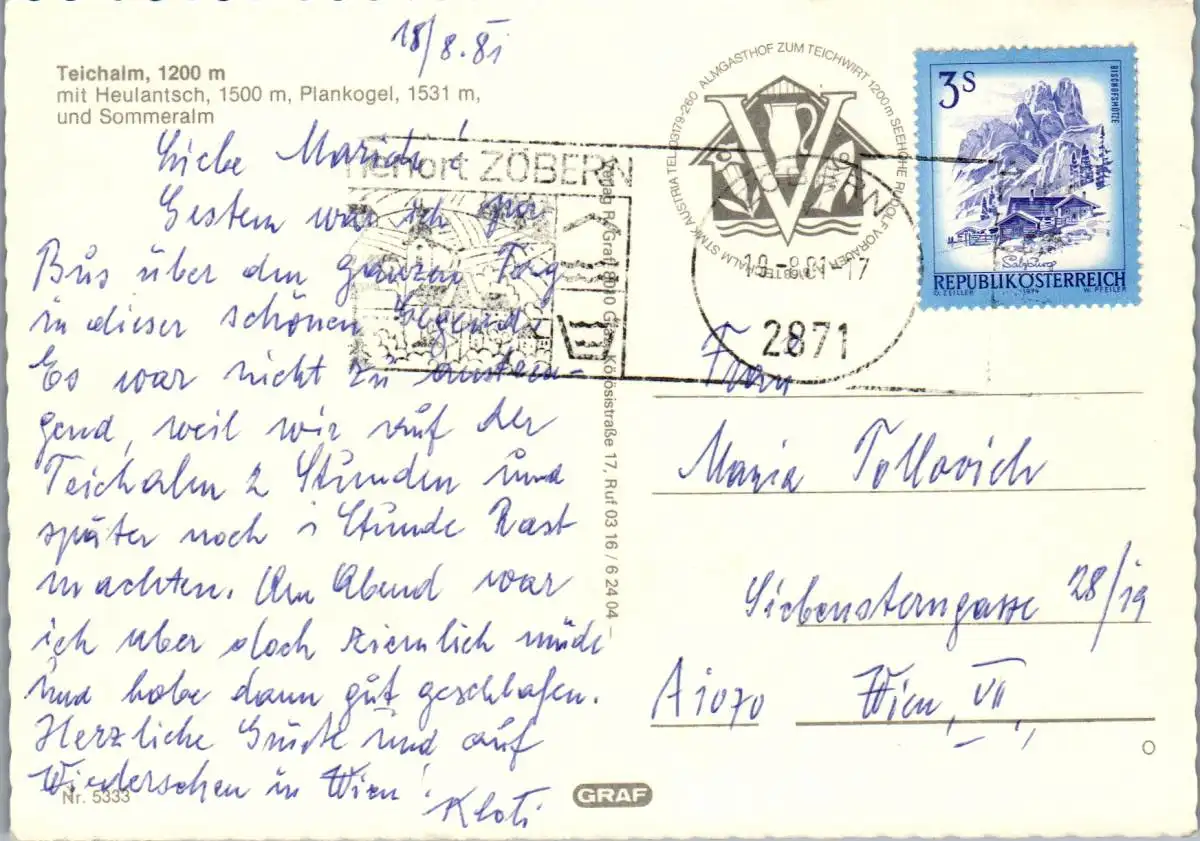 18/8.81
Teichalm, 1200 m
mit Heulantsch, 1500 m, Plankogel, 1531 m,
und Sommeralm
Liebe Maridi!
Gestern war ich per
Bus über den ganzen Tag
in dieser schönen Gegend.
Es war nicht zu anstren-
gend, weil wir auf der
Teichalm 2 Stunden und
später noch 1 Stunde Rast
machten. Am Abend war
ich aber doch ziemlich müde
und habe dann gut geschlafen.
Herzliche Grüße und auf
Wiedersehen in Wien!
Nr. 5333
GRAF
ZÖBERN
Verlag R. Graf, 8010 Graz, Körösistraße 17, Ruf 03 16 / 6 24 04 –
ALMGASTHOF ZUM TEICHWIRT 1200m SEEHÖHE RUDOLF VORAUER TEICHALM STMK AUSTRIA TEL 03179-260
V
-8.81-17
2871
3S
BISCHOFSMÜTZE
Salzburg
REPUBLIK ÖSTERREICH
O. ZEILLER 1974 W. PFEILER
Frau
Maria Tollovich
Siebensterngasse 28/19
A 1070 Wien, VII,